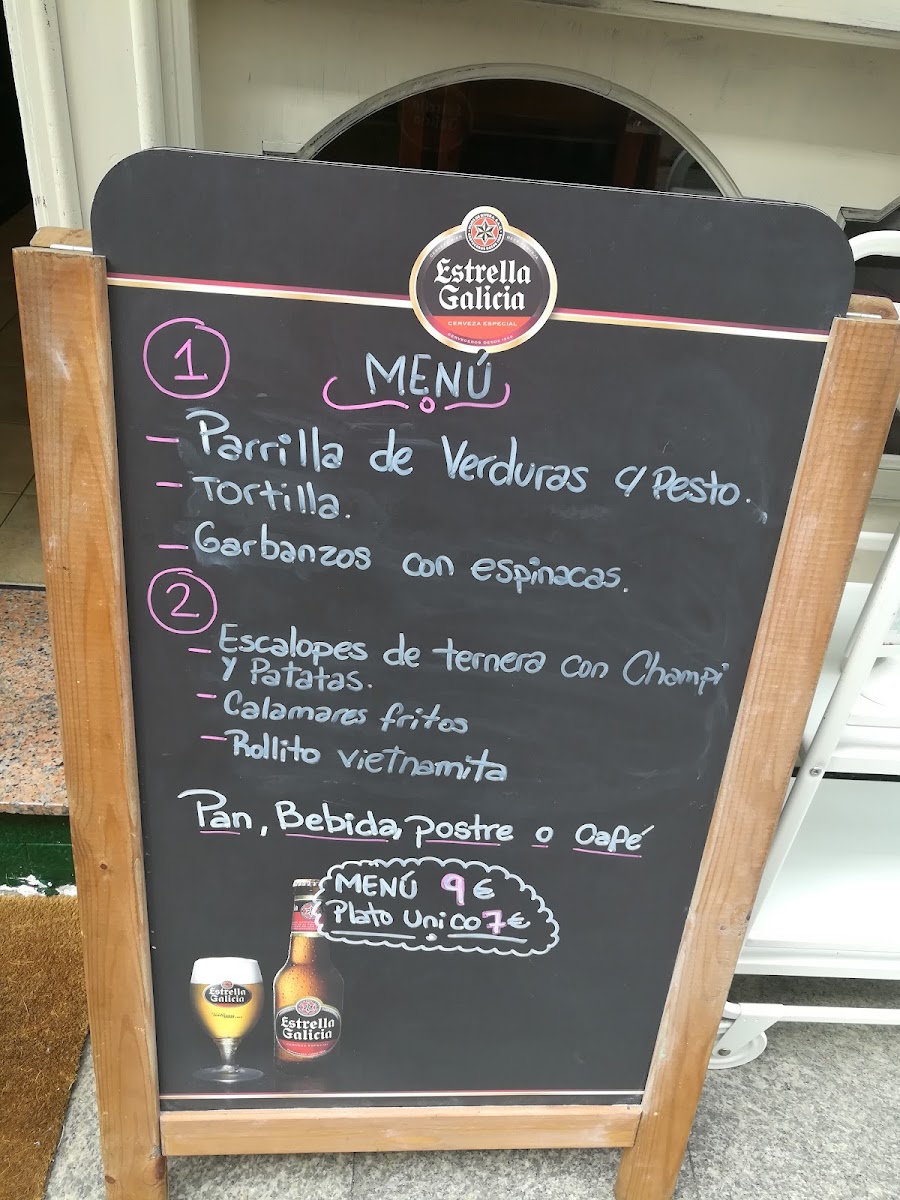 Estrella
Galicia
CERVEZA ESPECIAL
1
MENÚ
- Parrilla de Verduras c/ Pesto.
- Tortilla.
- Garbanzos con espinacas.
2
- Escalopes de ternera con Champi
y Patatas.
- Calamares fritos
- Rollito vietnamita
Pan, Bebida, postre o Café
MENÚ 9€
Plato Unico 7€
Estrella
Galicia
Estrella
Galicia